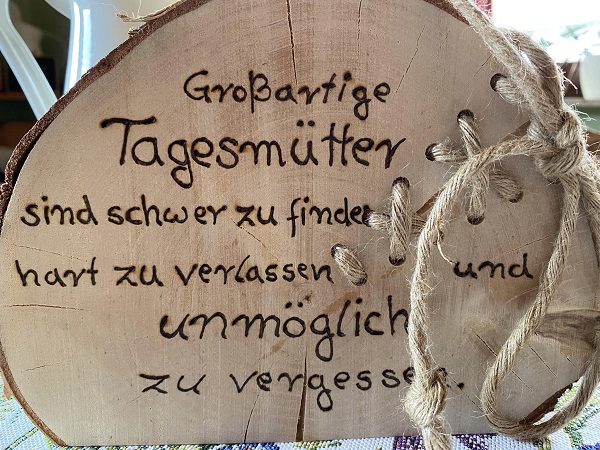 Großartige
Tagesmütter
sind schwer zu finden
hart zu verlassen und
unmöglich
zu vergessen.